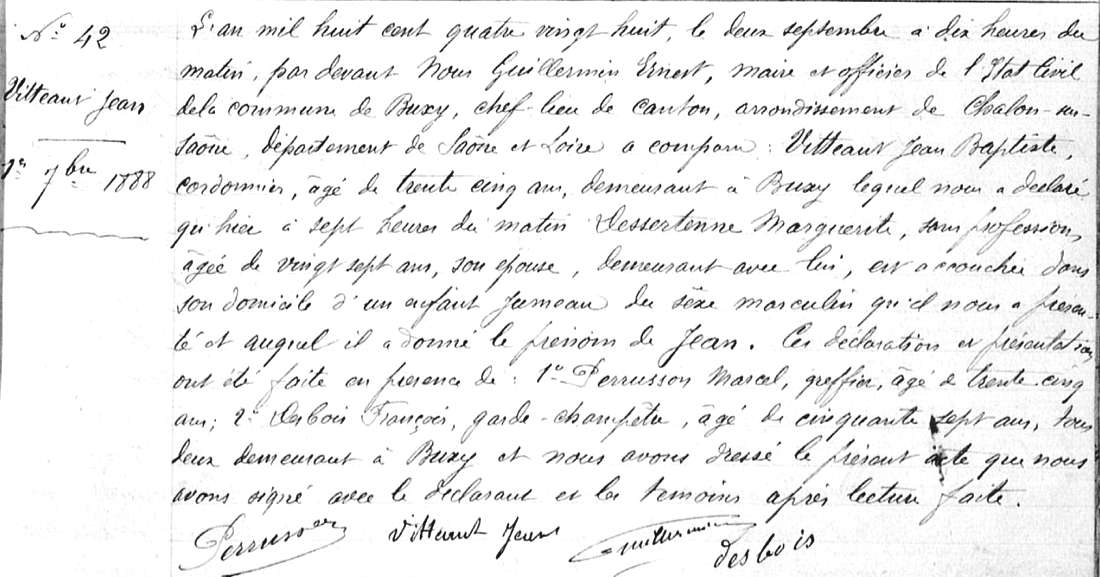 N° 42
Vitteaut Jean
1er 7bre 1888
L'an mil huit cent quatre vingt huit, le deux septembre à dix heures du
matin, par devant Nous Guillermin Ernest, maire et officier de l'Etat Civil
de la commune de Buxy, chef-lieu de canton, arrondissement de Chalon-sur-
Saône, département de Saône et Loire a comparu : Vitteaut Jean Baptiste,
cordonnier, âgé de trente cinq ans, demeurant à Buxy lequel nous a déclaré
qu'hier à sept heures du matin Dessertenne Marguerite, sans profession,
âgée de vingt sept ans, son épouse, demeurant avec lui, est accouchée dans
son domicile d'un enfant Jumeau du sèxe masculin qu'il nous a présen-
té et auquel il a donné le prénom de Jean. Ces déclaration et présentation
ont été faite en présence de : 1° Perrusson Marcel, greffier, âgé de trente cinq
ans ; 2° Desbois François, garde-champêtre, âgé de cinquante sept ans, tous
deux demeurant à Buxy et nous avons dressé le présent acte que nous
avons signé avec le déclarant et les témoins après lecture faite.
Perrusson Vitteaut Jean Guillermin desbois